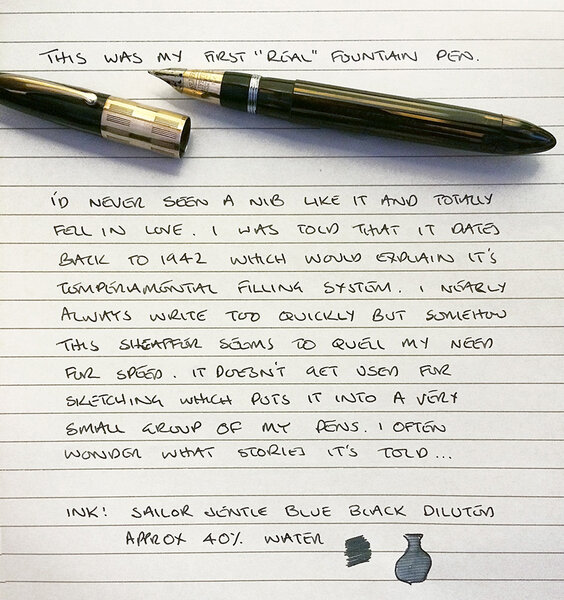 THIS WAS MY FIRST "REAL" FOUNTAIN PEN.
I'D NEVER SEEN A NIB LIKE IT AND TOTALLY
FELL IN LOVE. I WAS TOLD THAT IT DATES
BACK TO 1942 WHICH WOULD EXPLAIN IT'S
TEMPERIAMENTAL FILLING SYSTEM. I NEARLY
ALWAYS WRITE TOO QUICKLY BUT SOMEHOW
THIS SHEAFFER SEEMS TO QUELL MY NEED
FOR SPEED. IT DOESN'T GET USED FOR
SKETCHING WHICH PUTS IT INTO A VERY
SMALL GROUP OF MY PENS. I OFTEN
WONDER WHAT STORIES IT'S TOLD...
INK: SAILOR JENTLE BLUE BLACK DILUTED
APPROX 40% WATER